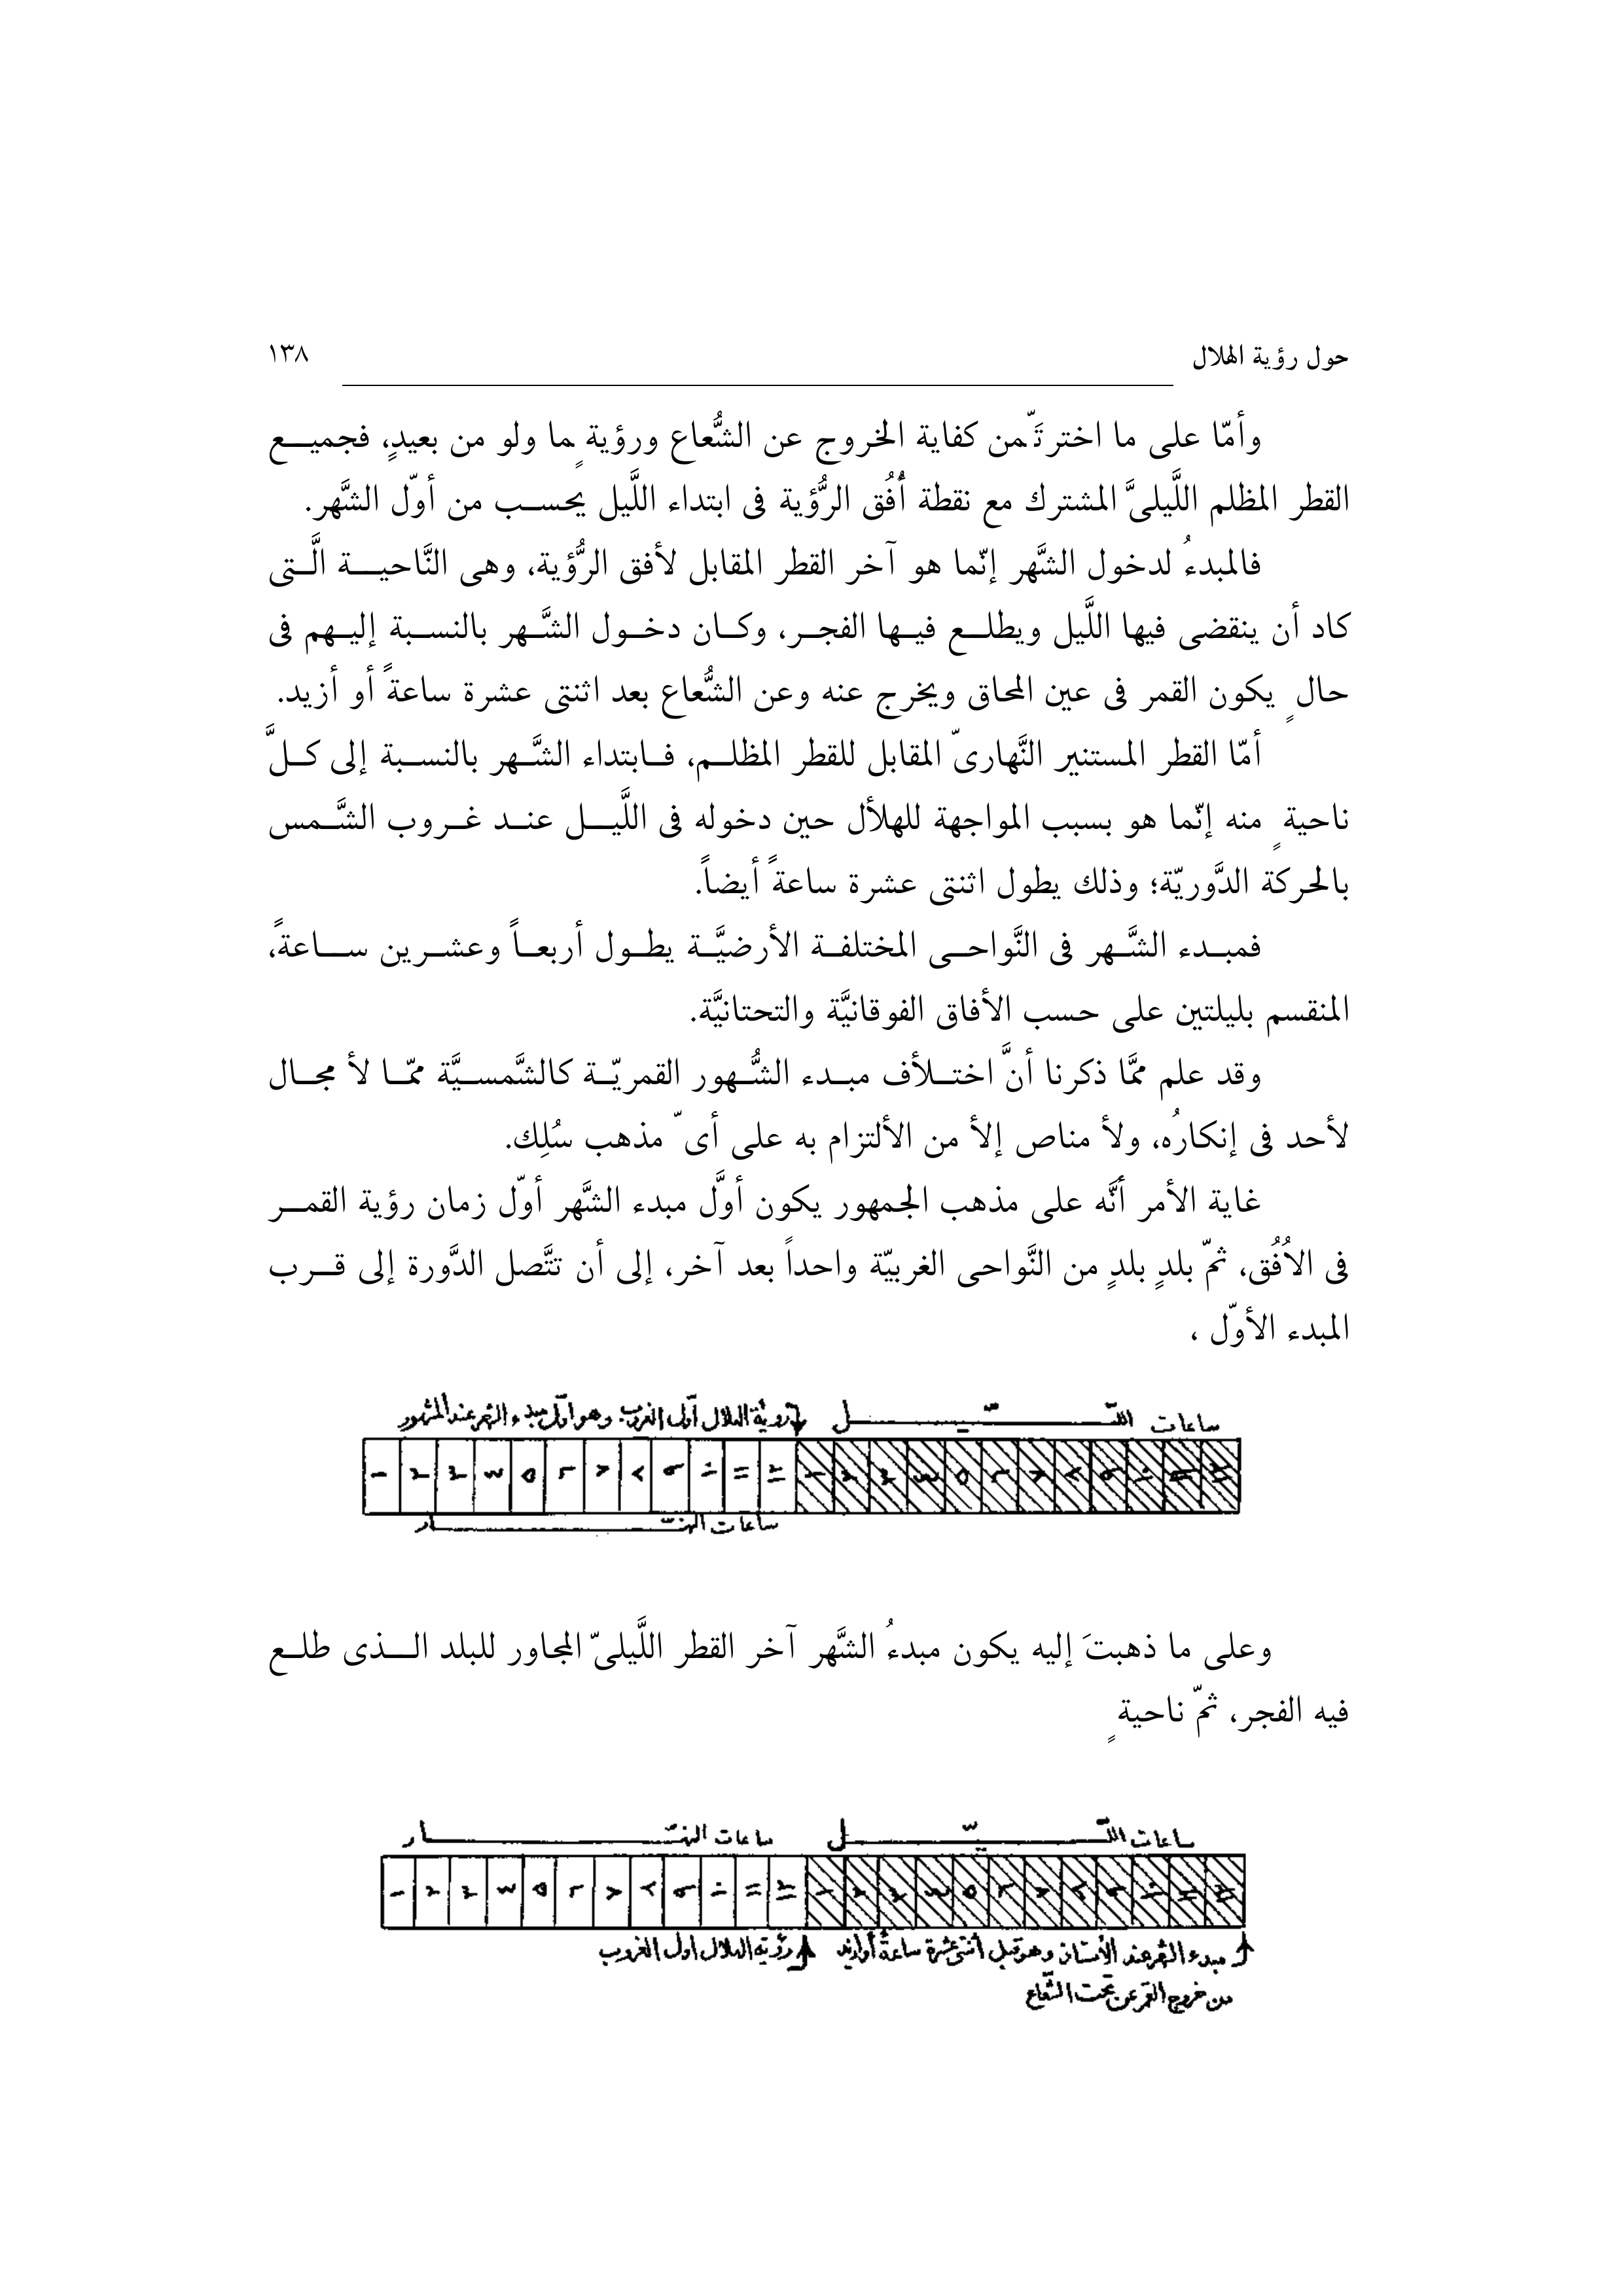 حول رؤية الهلال ١٣٨
وأمّا على ما اخترتَمّن كفاية الخروج عن الشُّعاع ورؤيةٍما ولو من بعيدٍ، فجميع
القطر المظلم اللَّيلىَّ المشترك مع نقطة أُفُق الرُّؤية فى ابتداء اللَّيل يحسب من أوّل الشَّهر.
فالمبدءُ لدخول الشَّهر إنّما هو آخر القطر المقابل لأفق الرُّؤية، وهى النَّاحية الَّتى
كاد أن ينقضى فيها اللَّيل ويطلع فيها الفجر، وكان دخول الشَّهر بالنسبة إليهم فى
حالٍ يكون القمر فى عين المحاق ويخرج عنه وعن الشُّعاع بعد اثنتى عشرة ساعةً أو أزيد.
أمّا القطر المستنير النَّهارىّ المقابل للقطر المظلم، فابتداء الشَّهر بالنسبة إلى كلَّ
ناحيةٍ منه إنّما هو بسبب المواجهة للهلأل حين دخوله فى اللَّيل عند غروب الشَّمس
بالحركة الدَّوريّة؛ وذلك يطول اثنتى عشرة ساعةً أيضاً.
فمبدء الشَّهر فى النَّواحى المختلفة الأرضيَّة يطول أربعاً وعشرين ساعةً،
المنقسم بليلتين على حسب الأفاق الفوقانيَّة والتحتانيَّة.
وقد علم ممَّا ذكرنا أنَّ اختلأف مبدء الشُّهور القمريّة كالشَّمسيَّة ممّا لأ مجال
لأحد فى إنكارُه، ولأ مناص إلأ من الألتزام به على أىّ مذهب سُلِك.
غاية الأمر أنَّه على مذهب الجمهور يكون أوَّل مبدء الشَّهر أوّل زمان رؤية القمر
فى الاُفُق، ثمّ بلدٍ بلدٍ من النَّواحى الغربيّة واحداً بعد آخر، إلى أن تتَّصل الدَّورة إلى قرب
المبدء الأوّل ،
ساعات اللّيّل رؤية الهلال أوّل الغروب وهو اوّل مبدء الشهر عند المشهور
١ ٢ ٣ ٤ ٥ ٦ ٧ ٨ ٩ ١٠ ١١ ١٢ ١ ٢ ٣ ٤ ٥ ٦ ٧ ٨ ٩ ١٠ ١١ ١٢
ساعات النهّار
وعلى ما ذهبتَ إليه يكون مبدءُ الشَّهر آخر القطر اللَّيلىّ المجاور للبلد الذى طلع
فيه الفجر، ثمّ ناحيةٍ
ساعات اللّيّل ساعات النهّار
١ ٢ ٣ ٤ ٥ ٦ ٧ ٨ ٩ ١٠ ١١ ١٢ ١ ٢ ٣ ٤ ٥ ٦ ٧ ٨ ٩ ١٠ ١١ ١٢
مبدء الشهر عند الأستاذ وهو قبل اثنتى عشرة ساعة أو ازيد رؤية الهلال اول الغروب
من خروج القمر عن تحت الشّعاع